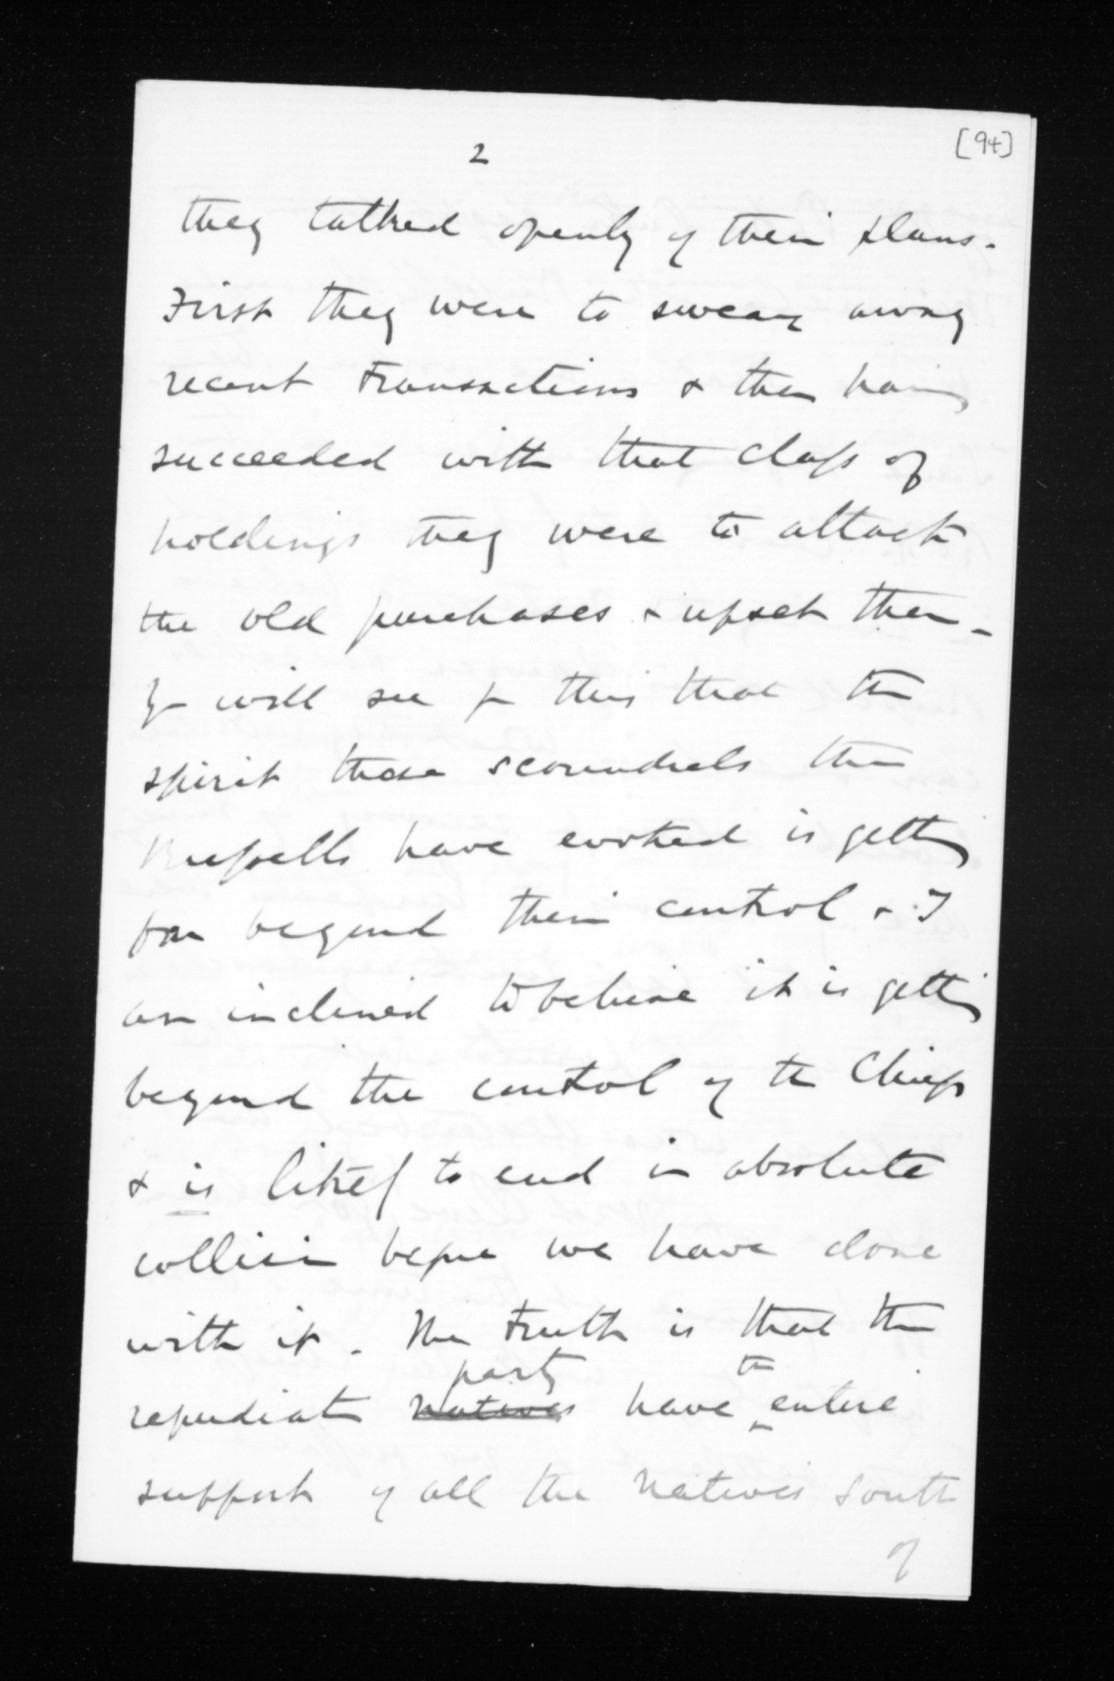 2
[94]
they talked openly of their plans.
First they were to swear away
recent transactions & then having
succeeded with that class of
holdings they were to attack
the old purchases & upset them -
Yr will see fr this that the
spirit these scoundrels the
Russells have evoked is getting
far beyond their control & I
am inclined to believe it is getting
beyond the control of the Chiefs
& is likely to end in absolute
collision before we have done
with it. The truth is that the
party the
repudiation Natives have entire
support of all the Natives South
of